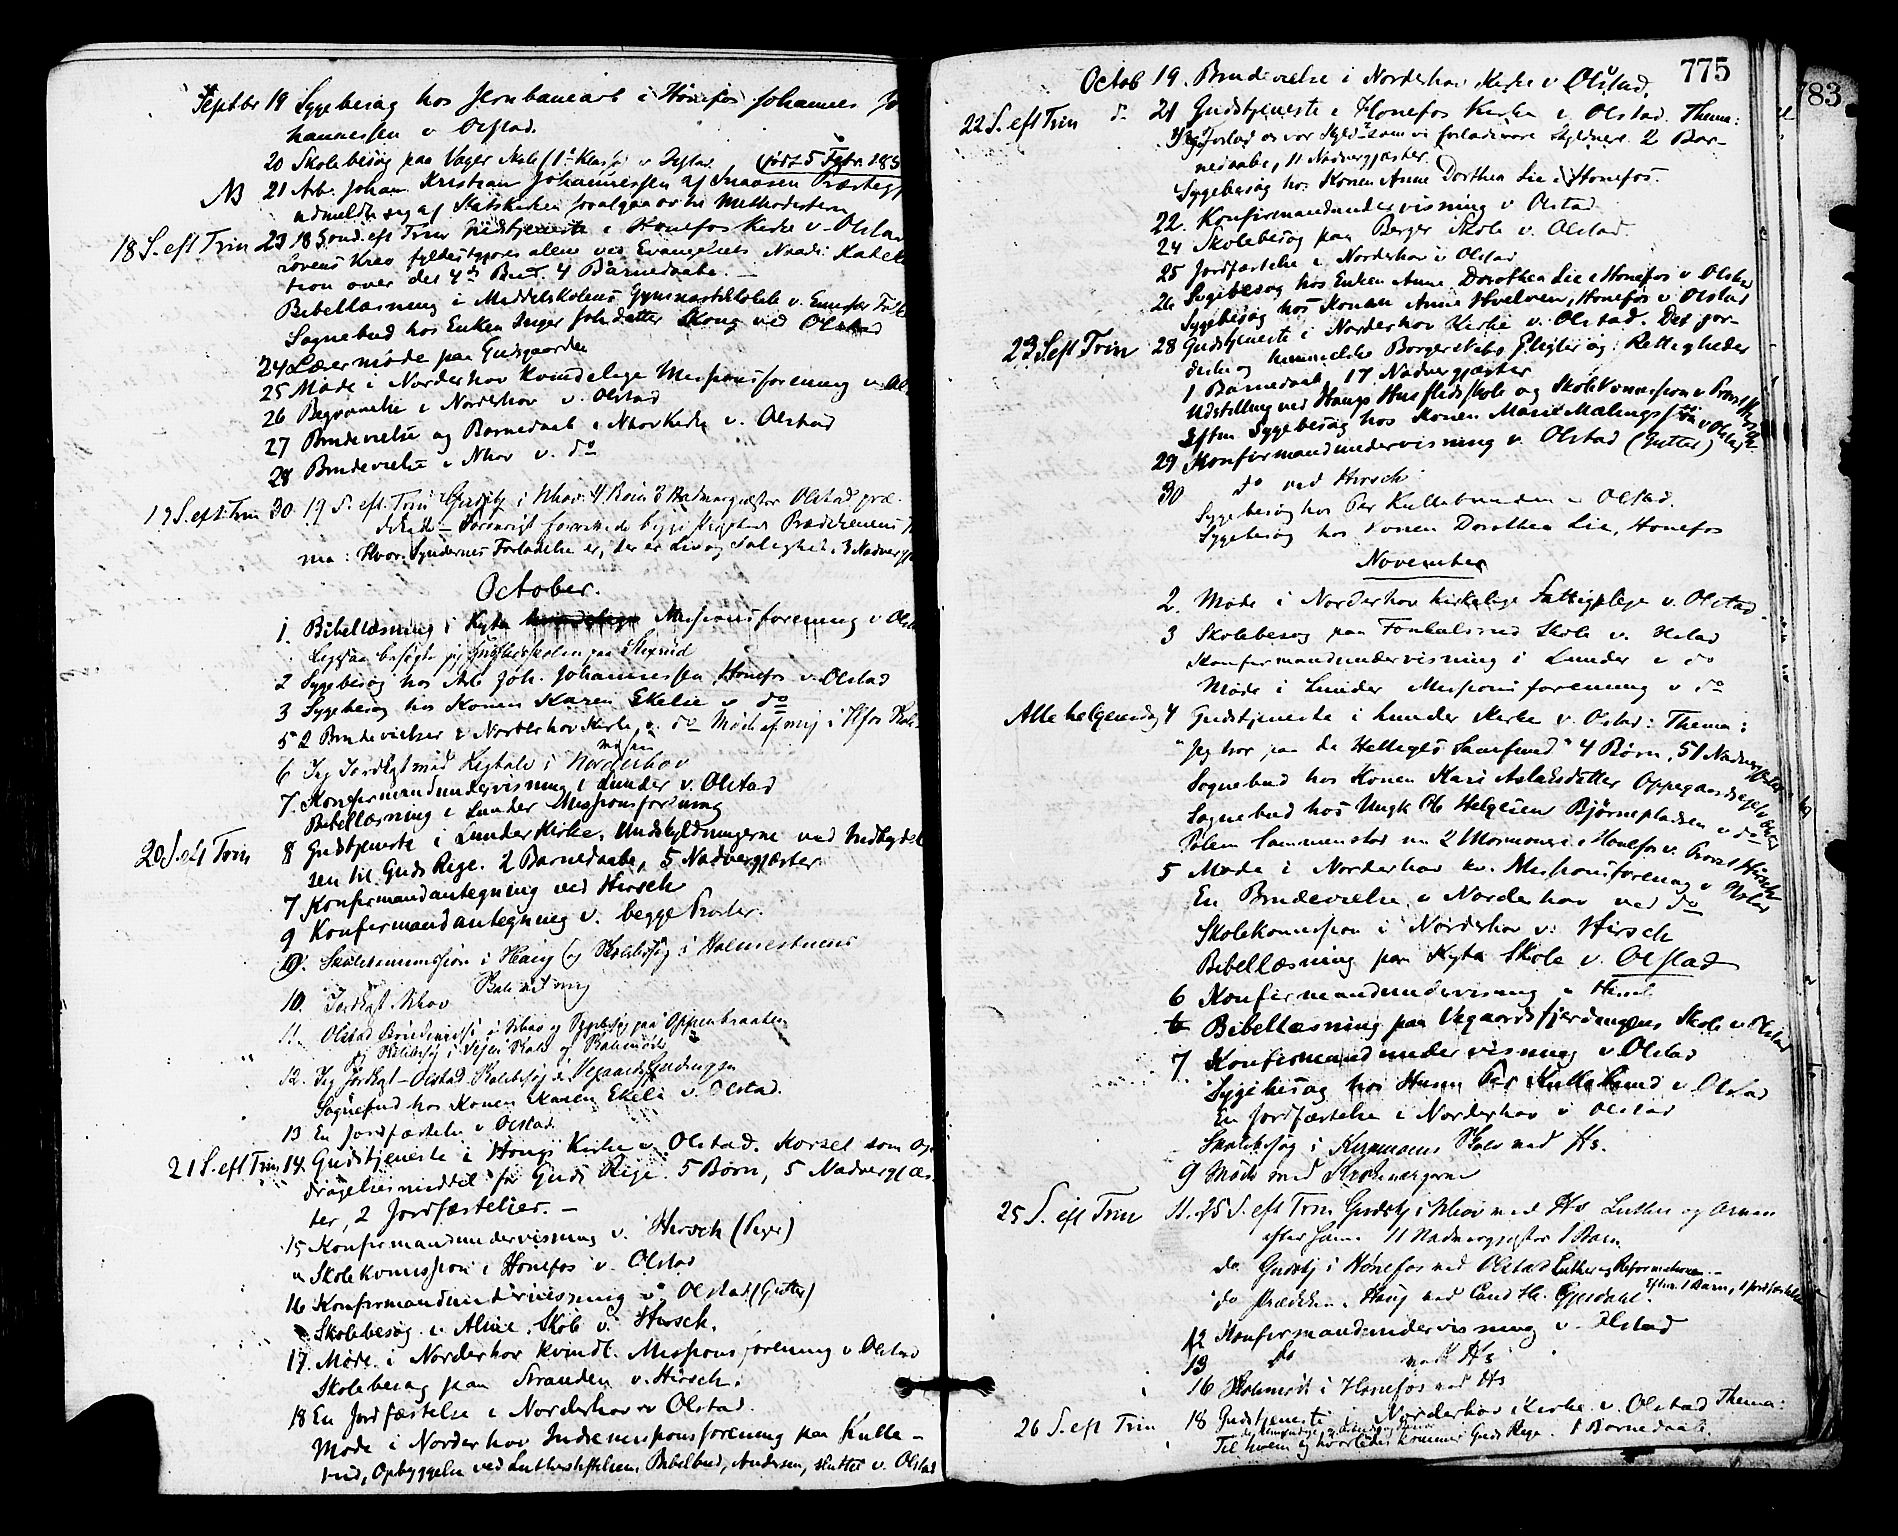 Septbr 19 Sygebesøg hos Jernbanearb i Hønefos Johannes Jo
hannessen v Olstad.
20 Skolebesøg paa Vager Skole (1ste Klasse) v Olstad
NB 21 Arb. Johan Kristian Johannessen af Snaasen Præstegj
udmeldte sig af Statskirken for at gaa over til Methodisterne
18 S. eft Trin 23 18 Sønd. eft Trin Gudstjeneste i Hønefos Kirke v. Olstad
Lovens Krav fyldestgjøres alene ved Evangeliets Naade. Katek
tion over det 4de Bud. 4 Barnedaabe. —
Bibellæsning i Middelskolens Gymnastiklokale v.
Sognebud hos Enken Inger Johsdatter Skong ved Olstad
24 Lærermøde paa Gudsgaarden
25 Møde i Norderhov kvindelige Missionsforening v. Ol
26 Begravelse i Norderhov v. Olstad
27 Brudevielse og Barnedaab i Nhov Kirke v. Olstad
28 Brudevielse i Nhov v. do
19 S. eft. Trin 30 19 S. eft. Trin Gudstj i Nhov. 4 Børn 8 Nadvergjæster Olstad præ-
dikede —
ma: Hvor Syndernes Forladelse er, der er Liv og Salighed. 3 Nadvergj
October.
1. Bibellæsning i Kyta Missionsforening v Olst
2 Sygebesøg hos Arb Joh. Johannessen Hønefos v. Olstad
3 Sygebesøg hos Konen Karen Ekelie v do
5 2 Brudevielser i Norderhov Kirke v. do Møde af mig i Hfos
6 Jeg Jordfgt med Ligtale i Norderhov
7. Konfirmandundervisning i Lunder v. Olstad
Bibellæsning i Lunder Missionsforening
20 S. eft Trin 8 Gudstjeneste i Lunder Kirke. Undskyldningerne ved Indbydel
sen til Guds Rige. 2 Barnedaabe, 5 Nadvergjæster
7 Konfirmandantegning ved Hirsch
9 Konfirmandantegning v. begge Præster.
10. Skolekommission i Haug og Skolebesøg i Halmestuens
Skole ved mig
10. Jordfgt. Nhov
11. Olstad Brudevielse i Nhov og Sygebesøg paa Oppenbraaten
12. Jeg Jordfgt — Olstad Skolebesøg i Vegaardsfjerdingen
Sognebud hos Konen Karen Ekelie v. Olstad.
13 En Jordfæstelse v Olstad
21 S. eft Trin 14. Gudstjeneste i Haugs Kirke v. Olstad. Korset som Op
dragelsesmiddel for Guds Rige. 5 Børn, 5 Nadvergjæs
ter, 2 Jordfæstelser. —
15 Konfirmandundervisning v. Hirsch (Piger)
" Skolekomission i Hønefos v. Olstad
16 Konfirmandundervisning v. Olstad (Gutter)
Skolebesøg i Alme Skole v. Hirsch.
17. Møde i Norderhov kvindl. Missionsforening v Olstad
Skolebesøg paa Stranden v. Hirsch.
18 En Jordfæstelse i Norderhov v Olstad.
Møde i Norderhov Indremissionsforening paa Kulle-
rud, Opbyggelse ved Lutherstiftelsens Bibelbud, Andersen, sluttet v. Olstad
775
783
Octob 19. Brudevielse i Norderhov Kirke v Olstad.
22 S. eft Trin d. 21 Gudstjeneste i Hønefos Kirke v Olstad. Thema:
Forlad os vor Skyld som vi forlade vore Skyldnere. 2 Bar-
nedaabe, 11 Nadvergjæster.
Sygebesøg hos Konen Anne Dorthea Lie i Hønefos.
22. Konfirmandundervisning v Olstad
24 Skolebesøg paa Berger Skole v. Olstad.
25 Jordfæstelse i Norderhov v Olstad
26 Sygebesøg hos Enken Anne Dorothea Lie i Hønefos v Olstad
Sygebesøg hos Konen Anne Hvelven, Hønefos v. Olstad
23 S eft Trin 28 Gudstjeneste i Norderhov Kirke v. Olstad. Det jor-
diske og himmelske Borgerskabs Pligter og Rettigheder
1 Barnedaab 17 Nadvergjæster
Udstilling ved Haugs Husflidsskole og Skolekommission v Provst Hirsch
Eftm Sygebesøg hos Konen Marie v Olstad
29 Konfirmandundervisning v. Olstad (Gutter)
30 do ved Hirsch
Sygebesøg hos Per Kullebunden v Olstad.
Sygebesøg hos Konen Dorothea Lie, Hønefos
November
2. Møde i Norderhov kirkelige Fattigpleje v. Olstad
3 Skolebesøg paa Skole v. Olstad
Konfirmandundervisning i Lunder v do
Møde i Lunder Missionsforening v do
Alle helgensdag 4 Gudstjeneste i Lunder Kirke v. Olstad: Thema:
"Jeg tror paa de Helliges Samfund" 4 Børn, 51 Nadvergjæster
Sognebud hos Konen Kari Aslaksdatter Oppegaardseje v Olstad
Sognebud hos Ungk Ole Helgesen Bjørnepladsen v do
Sammenstød m 2 Mormoner i Hønefos v. Provst Hirsch
5 Møde i Norderhov kv. Missionsforening v Olstad
En Brudevielse i Norderhov ved do
Skolekomission i Norderhov v: Hirsch
Bibellæsning paa Kyta Skole v. Olstad
6 Konfirmandundervisning v Hirsch
6 Bibellæsning paa Vegaardsfjerdingens Skole v Olstad
7 Konfirmandundervisning v Olstad
Sygebesøg hos Husm Per Kullebund v Olstad
En Jordfæstelse i Norderhov v Olstad
Skolebesøg i Skole ved Hs.
9 Møde med
25 S. eft Trin 11. 25 S. eft Trin Gudstj i Nhov ved Hs Luther og Arven
efter ham 11 Nadvergjæster 1 Barn.
do Gudstj i Hønefos ved Olstad Luther og Reformationen —
do Prædiken i Haug ved Cand th. Gjerdahl. Eftm. 1 Barn, 1 Jordfæstelse
12 Konfirmandundervisning v. Olstad
13 do ved Hs
16 Skolemøde i Hønefos ved Hs
26 S. eft Trin 18 Gudstjeneste i Norderhov Kirke v. Olstad Thema:
Til hvem og hvorledes kommer Guds Rige. 1 Barnedaab.